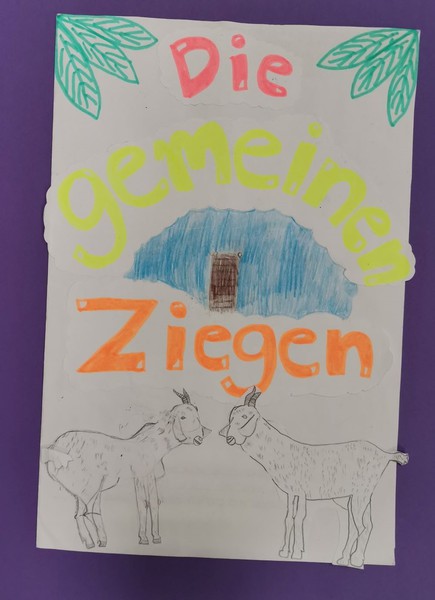 Die
gemeinen
Ziegen